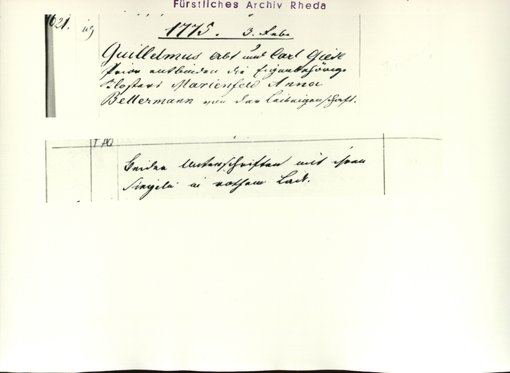 Fürstliches Archiv Rheda
1621.
1775. 3. Febr.
Guillelmus Abt und Carl Giese
Prior entbinden die Eigenbehörige
Klosters Marienfeld Anna
Bellermann von der Leibeigenschaft.
Beider Unterschriften mit ihren
Siegeln in rothem Lack.